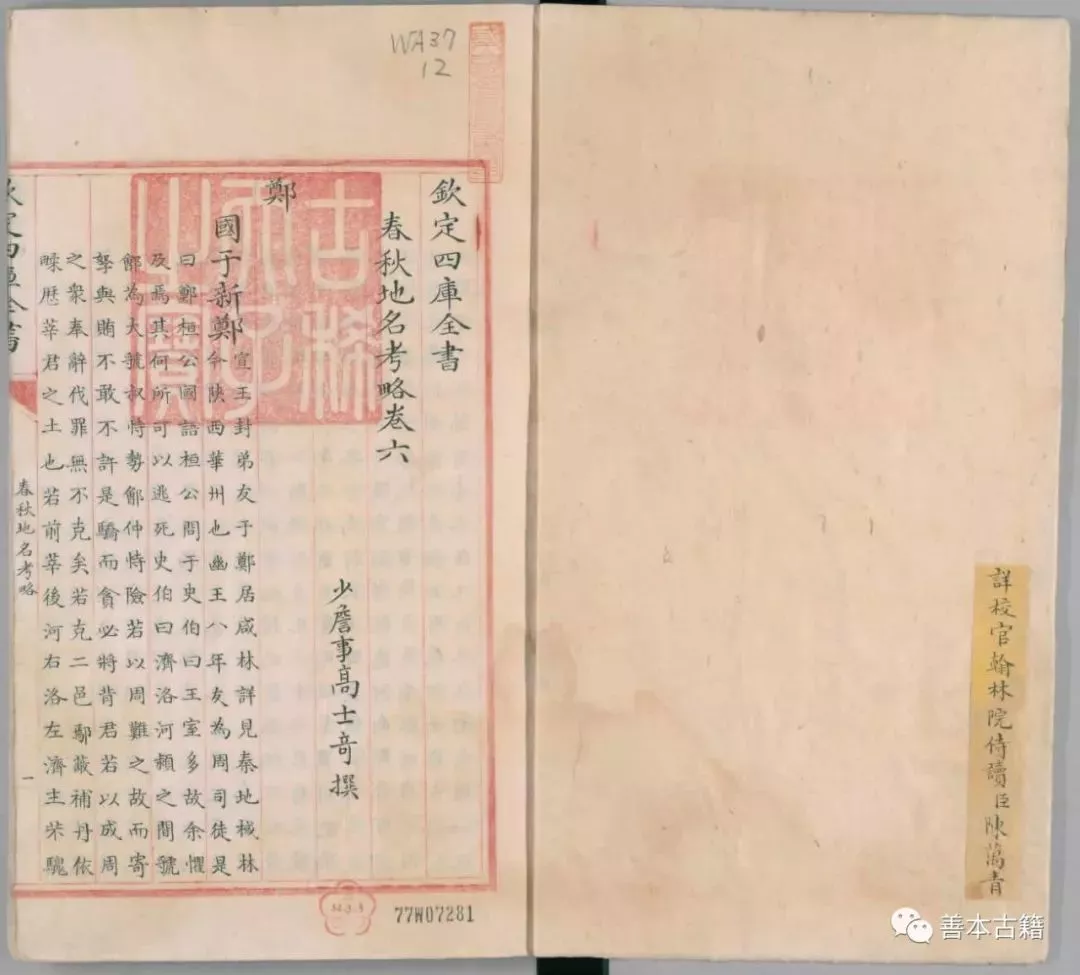 詳校官翰林院侍讀臣陳萬青
WA37
12
古稀天子之寶
欽定四庫全書
春秋地名考略卷六
少詹事高士奇撰
鄭
國于新鄭
宣王封弟友于鄭居咸林詳見秦地棫林
今陝西華州也幽王八年友為周司徒是
曰鄭桓公國語桓公問于史伯曰王室多故余懼
及焉其何所可以逃死史伯曰濟洛河潁之間虢
鄶為大虢叔恃勢鄶仲恃險若以周難之故而寄
孥與賄不敢不許是驕而貪必將背君若以成周
之衆奉辭伐罪無不克矣若克二邑鄢蔽補丹依
歷莘君之土也若前莘後河右洛左濟主芣騩
欽定四庫全書
春秋地名考略
一
77W07281
善本古籍